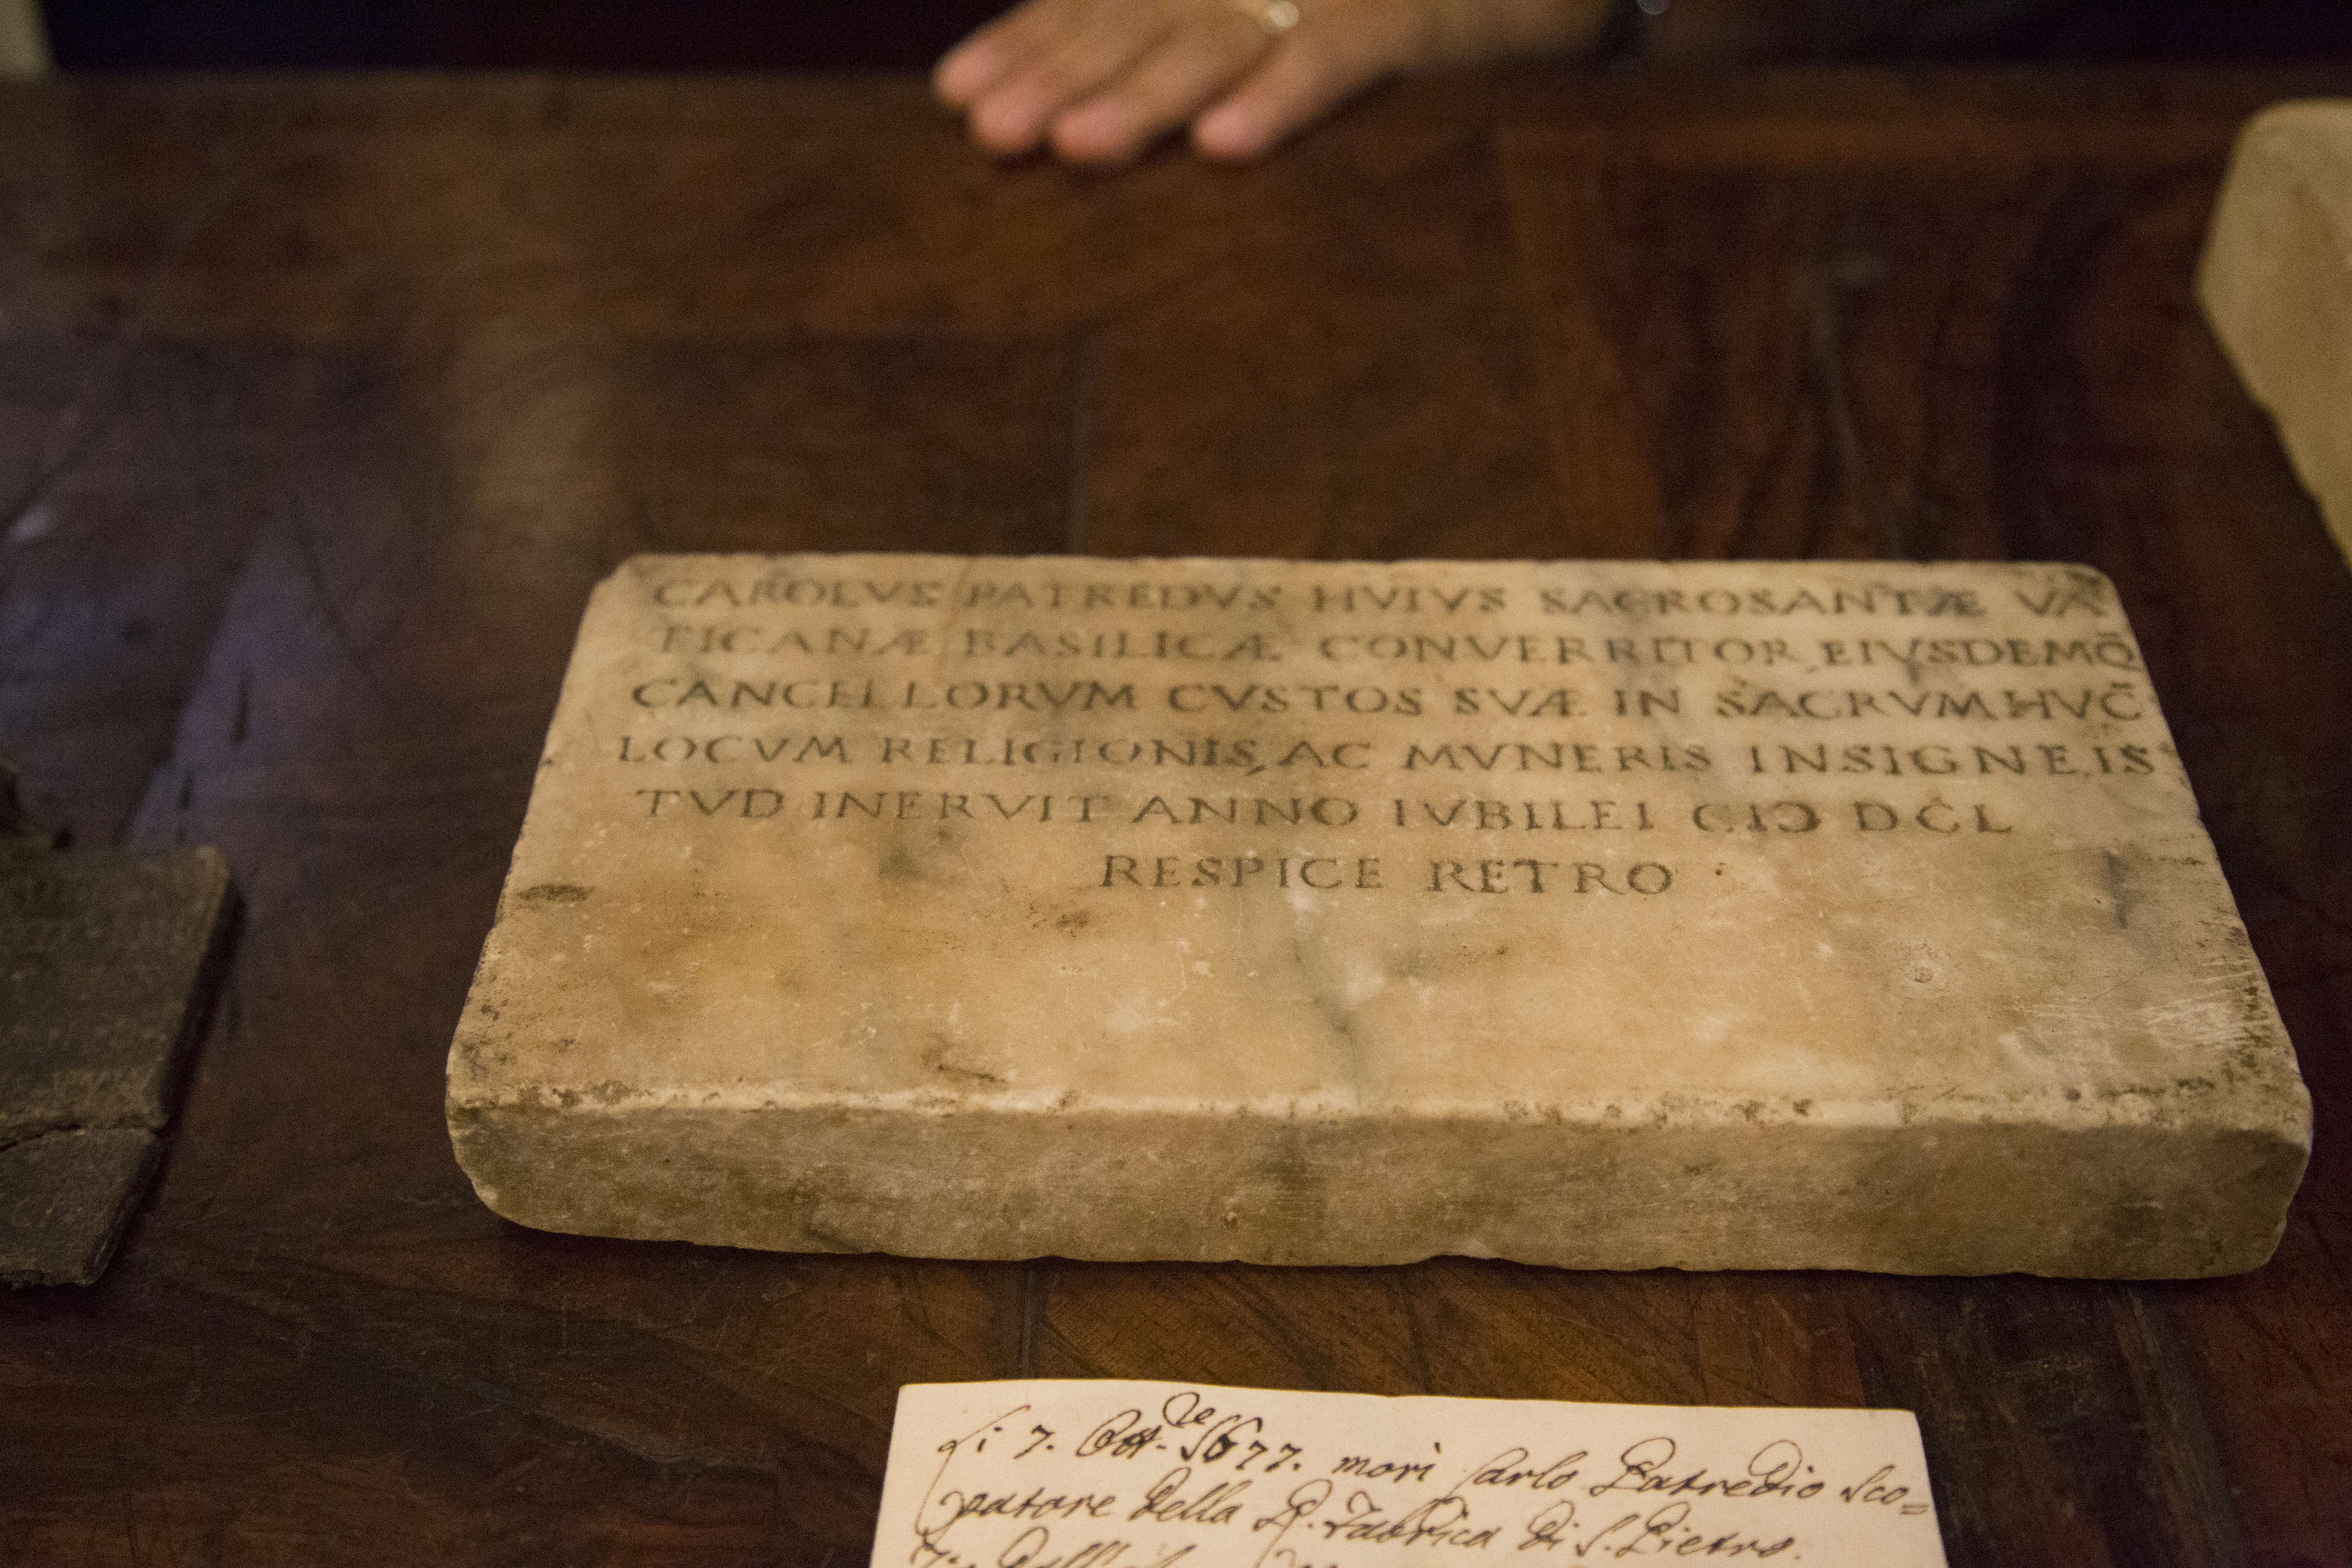 CAROLVS PATREDVS HVIVS SACROSANTÆ VA
TICANÆ BASILICÆ CONVERRITOR, EIVSDEMQ̃
CANCELLORVM CVSTOS SVÆ IN SACRVM HVC̃
LOCVM RELIGIONIS, AC MVNERIS INSIGNE, IS
TVD INERVIT ANNO IVBILEI CIↃ DCL
RESPICE RETRO
Li 7. Ott.re 1677. morì Carlo Patredio sco=
patore della R. Fabrica di S. Pietro.